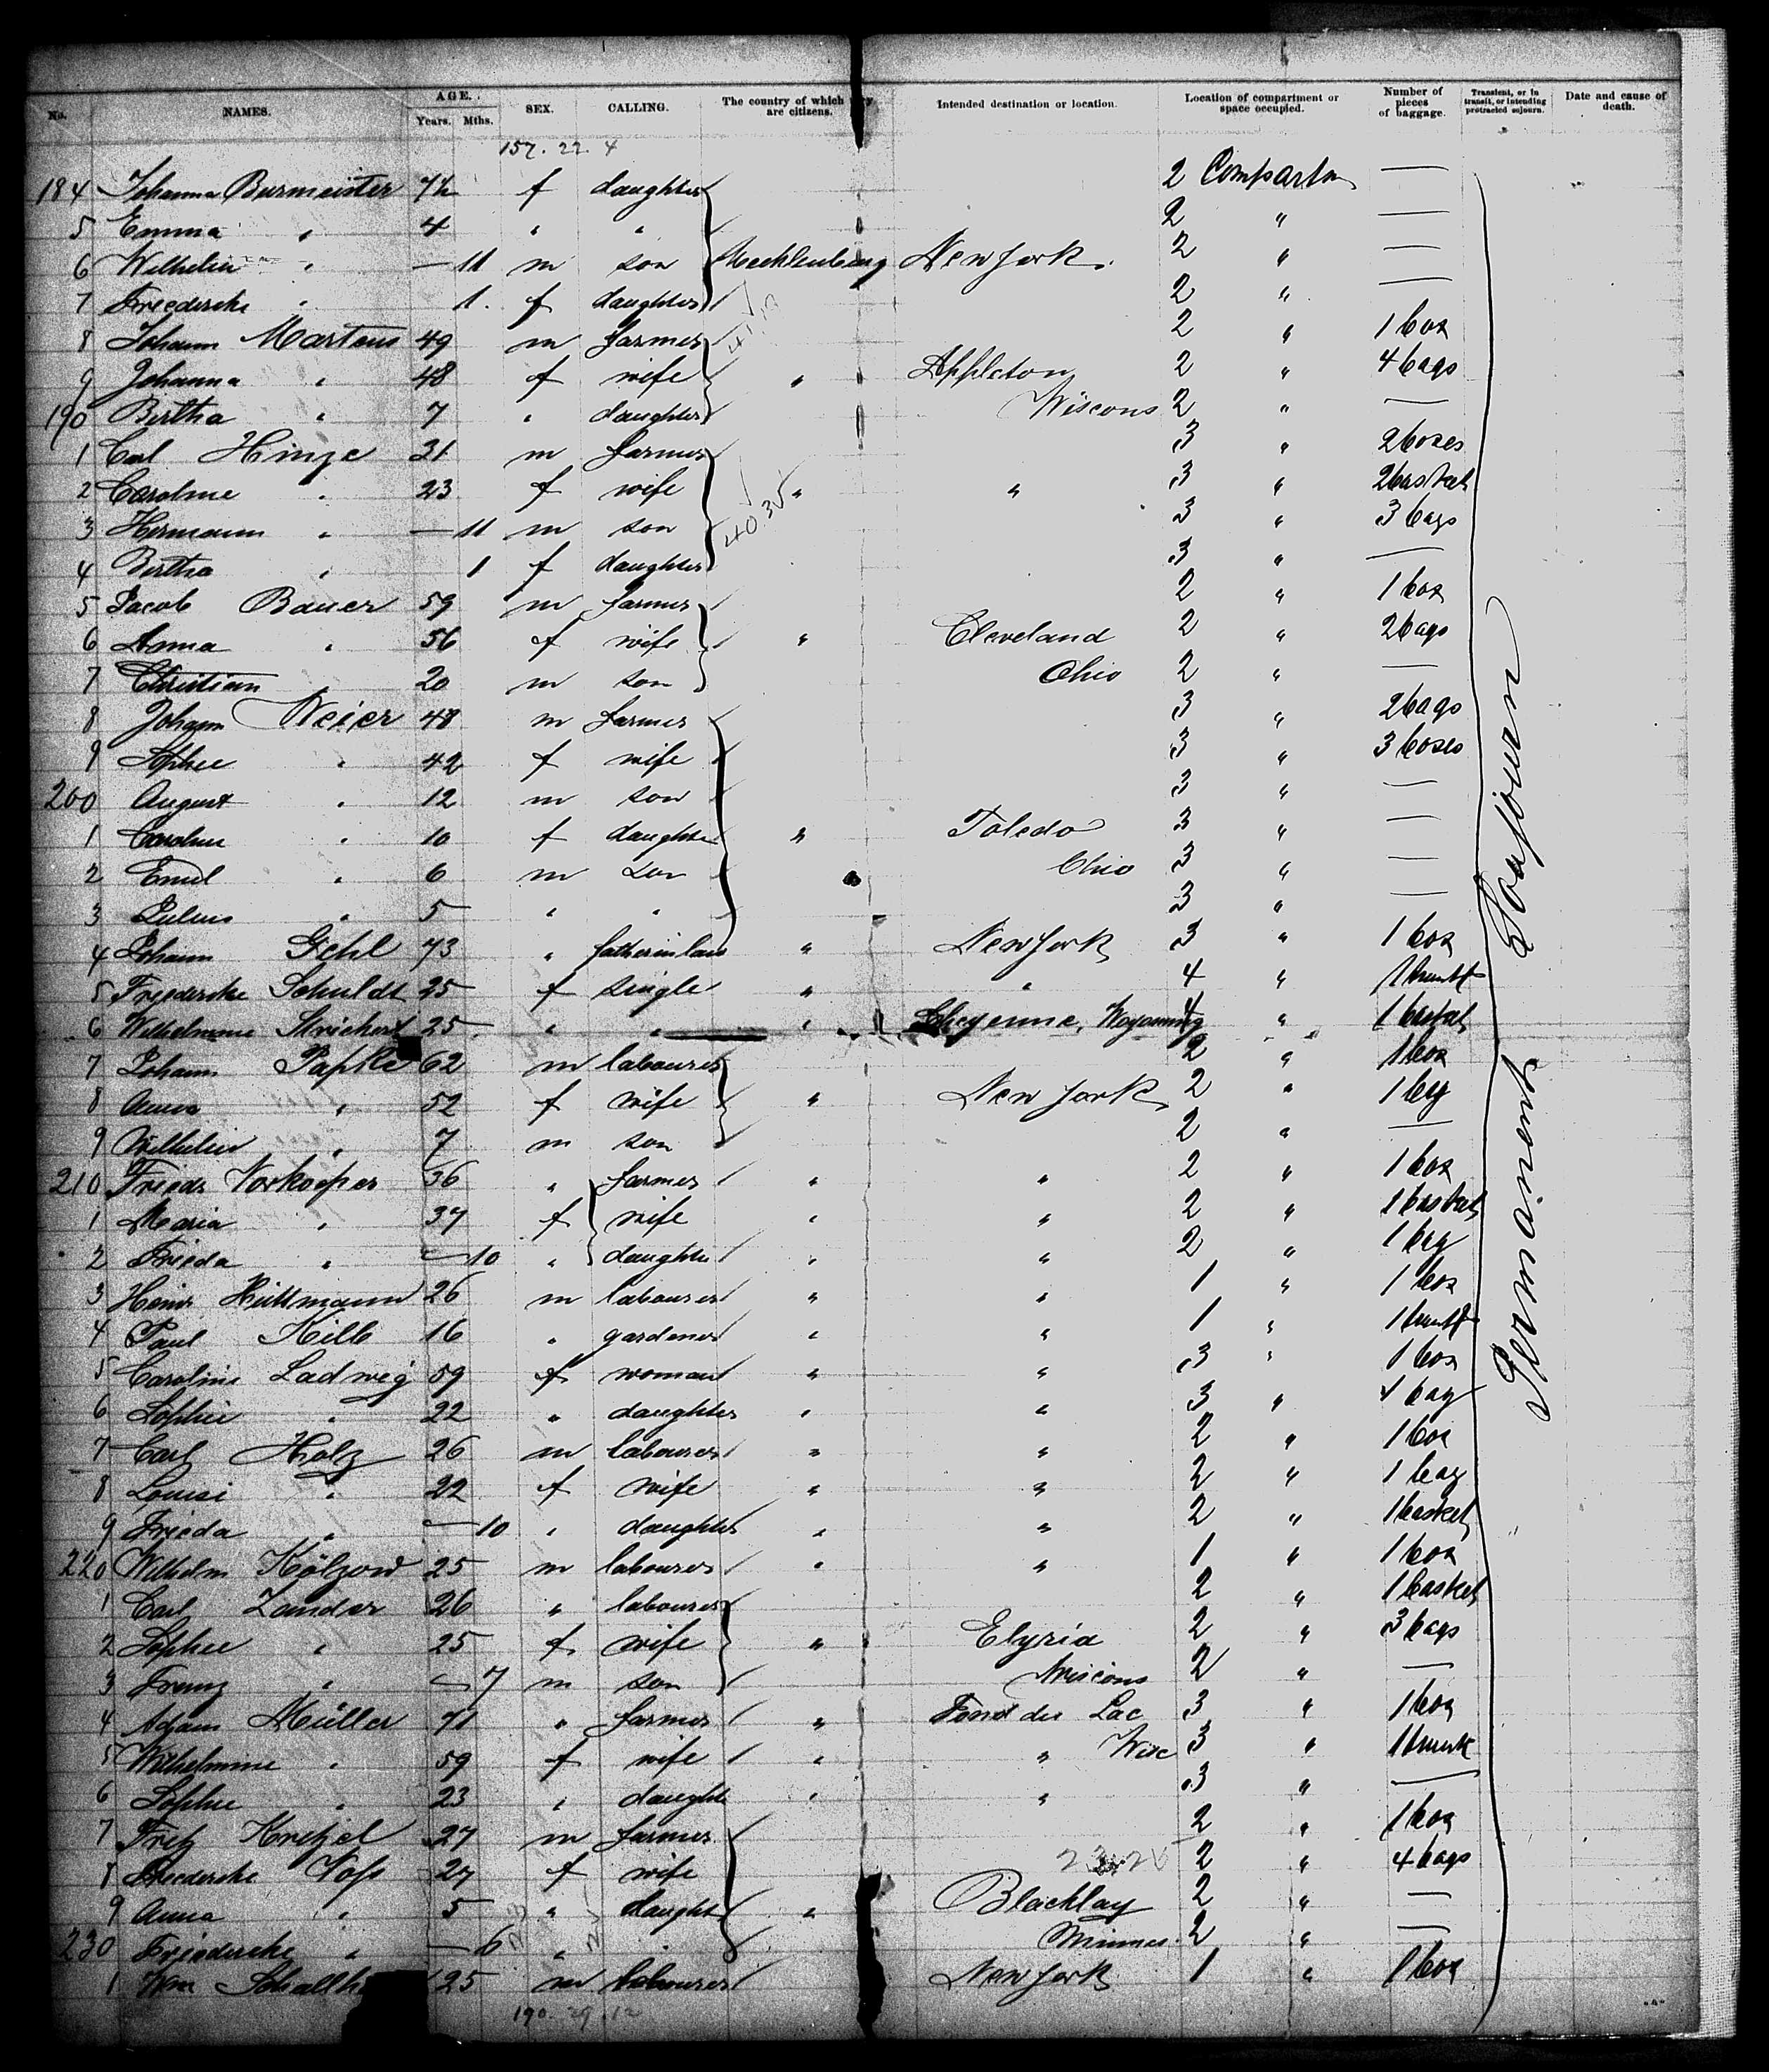 No. NAMES. AGE. Years. Mths. SEX. CALLING. The country of which they are citizens. Intended destination or location. Location of compartment or space occupied. Number of pieces of baggage. Transient, or in transit, or intending protracted sojourn. Date and cause of death.
157. 22. 4
184 Johanna Burmeister f daughter 2 Compartm —
5 Emma " 4 " " 2 " —
6 Wilhelm " — 11 m son Mecklenburg New York. 2 " —
7 Friedericke " 1. f daughter 2 " —
8 Johann Martens 49 m farmer 2 " 1 box
9 Johanna " 48 f wife " Appleton 2 " 4 bags
190 Bertha " 7 " daughter Wiscons 2 " —
1 Carl Hinze 31 m farmer 3 " 2 boxes
2 Caroline " 23 f wife " " 3 " 2 baskets
3 Hermann " — 11 m son 3 " 3 bags
4 Bertha " 1 f daughter 3 " —
5 Jacob Bauer 59 m farmer 2 " 1 box
6 Anna " 56 f wife " Cleveland 2 " 2 bags
7 Christian " 20 m son Ohio 2 " —
8 Johann Meier 48 m farmer 3 " 2 bags
9 Sophie " 42 f wife 3 " 3 boxes
200 August " 12 m son 3 " —
1 Caroline " 10 f daughter " Toledo 3 " —
2 Emil " 6 m son Ohio 3 " —
3 Julius " 5 " " 3 " —
4 Johann Gehl 73 " father in law " New York 3 " 1 box
5 Friedericke Schuldt 25 f single " " 4 " 1 trunk
6 Wilhelmine 25 " " " Cheyenne, Woyoming 4 " 1 basket
7 Johann Papke 62 m labourer 2 " 1 box
8 Anna " 52 f wife " New York 2 " 1 bag
9 Wilhelm " 7 m son 2 " —
210 Friedr Vorkoeper 36 " farmer " " 2 " 1 box
1 Maria " 37 f wife " " 2 " 1 basket
2 Frieda " — 10 " daughter " " 2 " 1 bag
3 Heinr Hüttmann 26 m labourer " " 1 " 1 box
4 Paul Kilb 16 " gardener " " 1 " 1 trunk
5 Caroline Ladwig 59 f woman " " 3 " 1 box
6 Sophie " 22 " daughter " " 3 " 1 bag
7 Carl Holz 26 m labourer " " 2 " 1 box
8 Louise " 22 f wife " " 2 " 1 bag
9 Frieda " — 10 " daughter " " 2 " 1 basket
220 Wilhelm Kölzow 25 m labourer " " 1 " 1 box
1 Carl Zander 26 " labourer 2 " 1 basket
2 Sophie " 25 f wife " Elyria 2 " 3 bags
3 Franz " — 7 m son Wiscons 2 " —
4 Adam Müller 71 " farmer " Fond du Lac 3 " 1 box
5 Wilhelmine " 59 f wife " " Wisc 3 " 1 trunk
6 Sophie " 23 " daughter " " 3 " —
7 Fritz Kretzel 27 m farmer 2 " 1 box
8 Friedericke Voss 27 f wife 2 " 4 bags
9 Anna " 5 " daught " Blacklay 2 " —
230 Friedericke " — 6 " " Minnes. 2 " —
1 Wm 25 m labourer New York 1 " 1 box
190. 29. 12
Permanent Soujourn